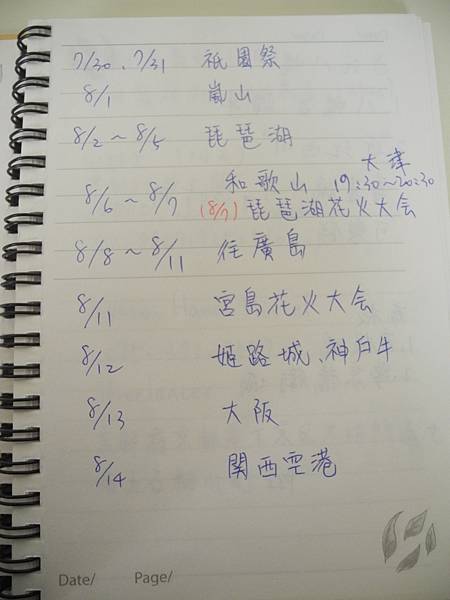 7/30、7/31 祇園祭
8/1 嵐山
8/2～8/5 琵琶湖
大津
8/6～8/7 和歌山 19:30～20:30
(8/7) 琵琶湖花火大会
8/8～8/11 住廣島
8/11 宮島花火大会
8/12 姬路城、神戶牛
8/13 大阪
8/14 関西空港
Date/ Page/